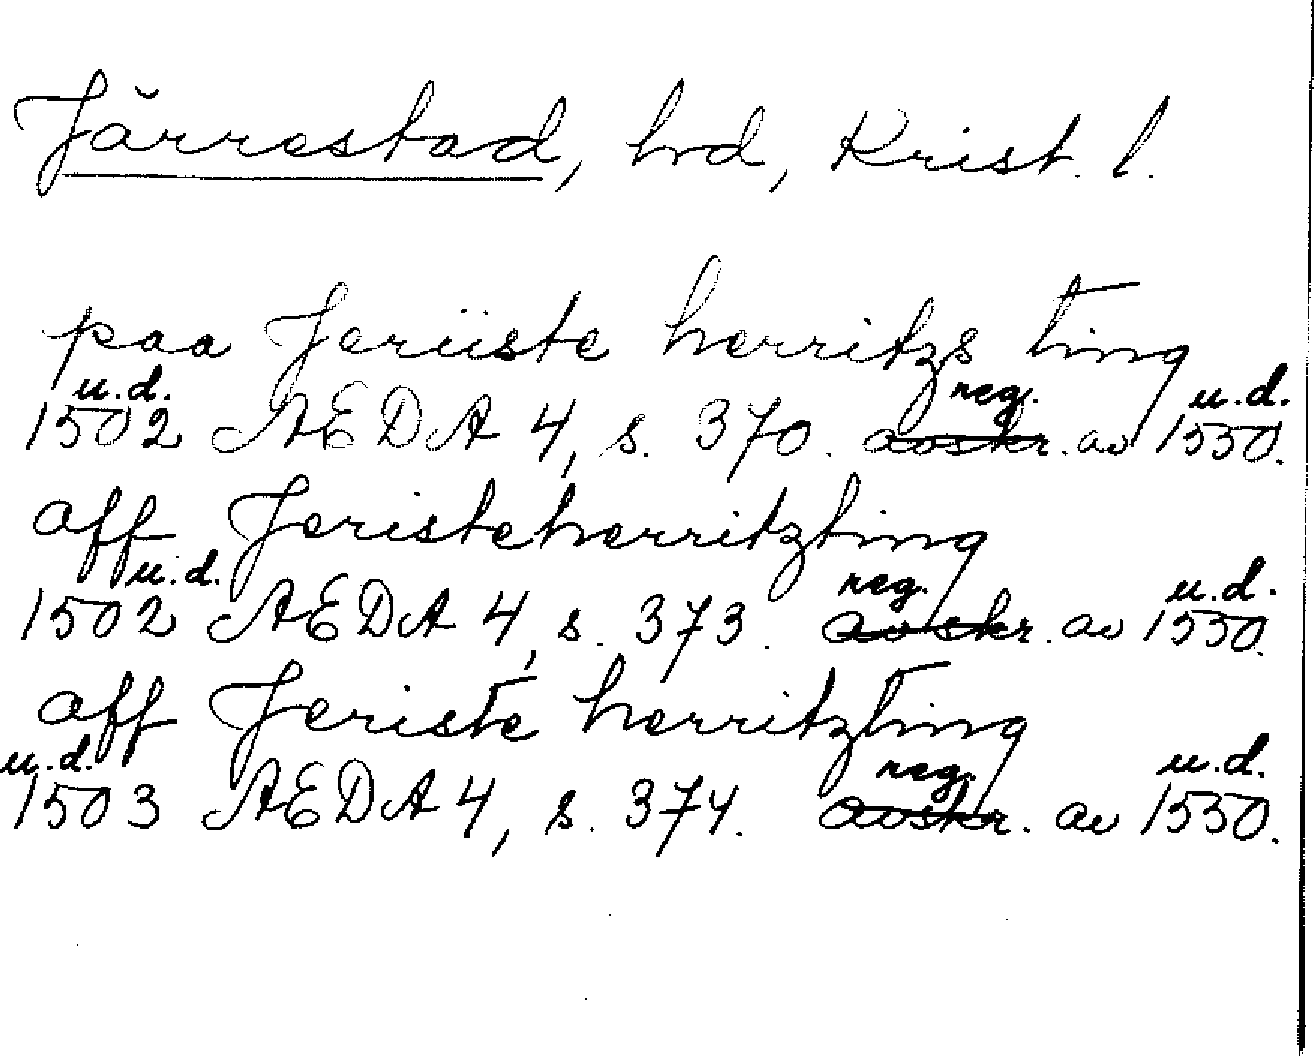 Järrestad, hrd, Krist. l.
paa Jeriiste herritzs ting
u.d. reg. u.d.
1502 AEDA 4, s. 370. avskr. av 1550.
aff Jeristeherritzting
u.d. reg. u.d.
1502 AEDA 4, s. 373. avskr. av 1550.
aff Jeriste herritzting
u.d. reg. u.d.
1503 AEDA 4, s. 374. avskr. av 1550.